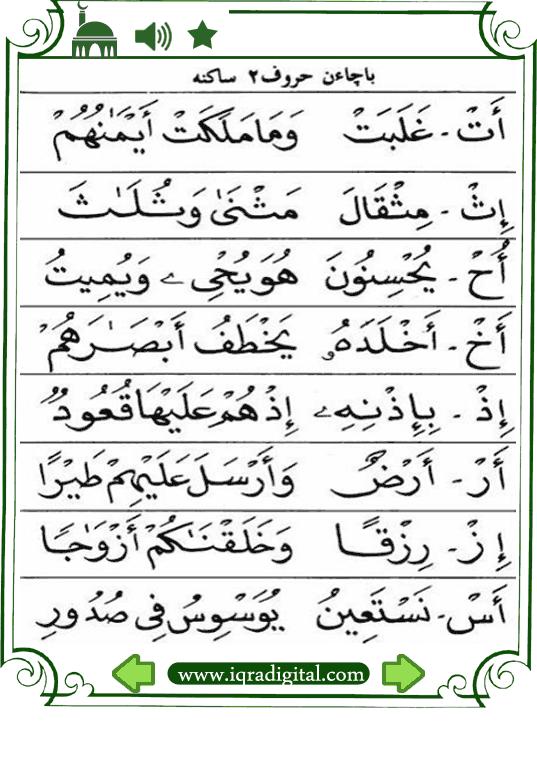 باچاءن حروف٢ ساکنه
أَتْ - غَلَبَتْ وَمَا مَلَكَتْ أَيْمَٰنُهُمْ
إِثْ - مِثْقَالَ مَثْنَىٰ وَثُلَٰثَ
أُحْ - يُحْسِنُونَ هُوَ يُحْيِۦ وَيُمِيتُ
أَخْ - أَخْلَدَهُۥ يَخْطَفُ أَبْصَٰرَهُمْ
إِذْ - بِإِذْنِهِۦ إِذْ هُمْ عَلَيْهَا قُعُودٌ
أَرْ - أَرْضٌ وَأَرْسَلَ عَلَيْهِمْ طَيْرًا
إِزْ - رِزْقًا وَخَلَقْنَٰكُمْ أَزْوَٰجًا
أَسْ - نَسْتَعِينُ يُوَسْوِسُ فِي صُدُورِ
www.iqradigital.com